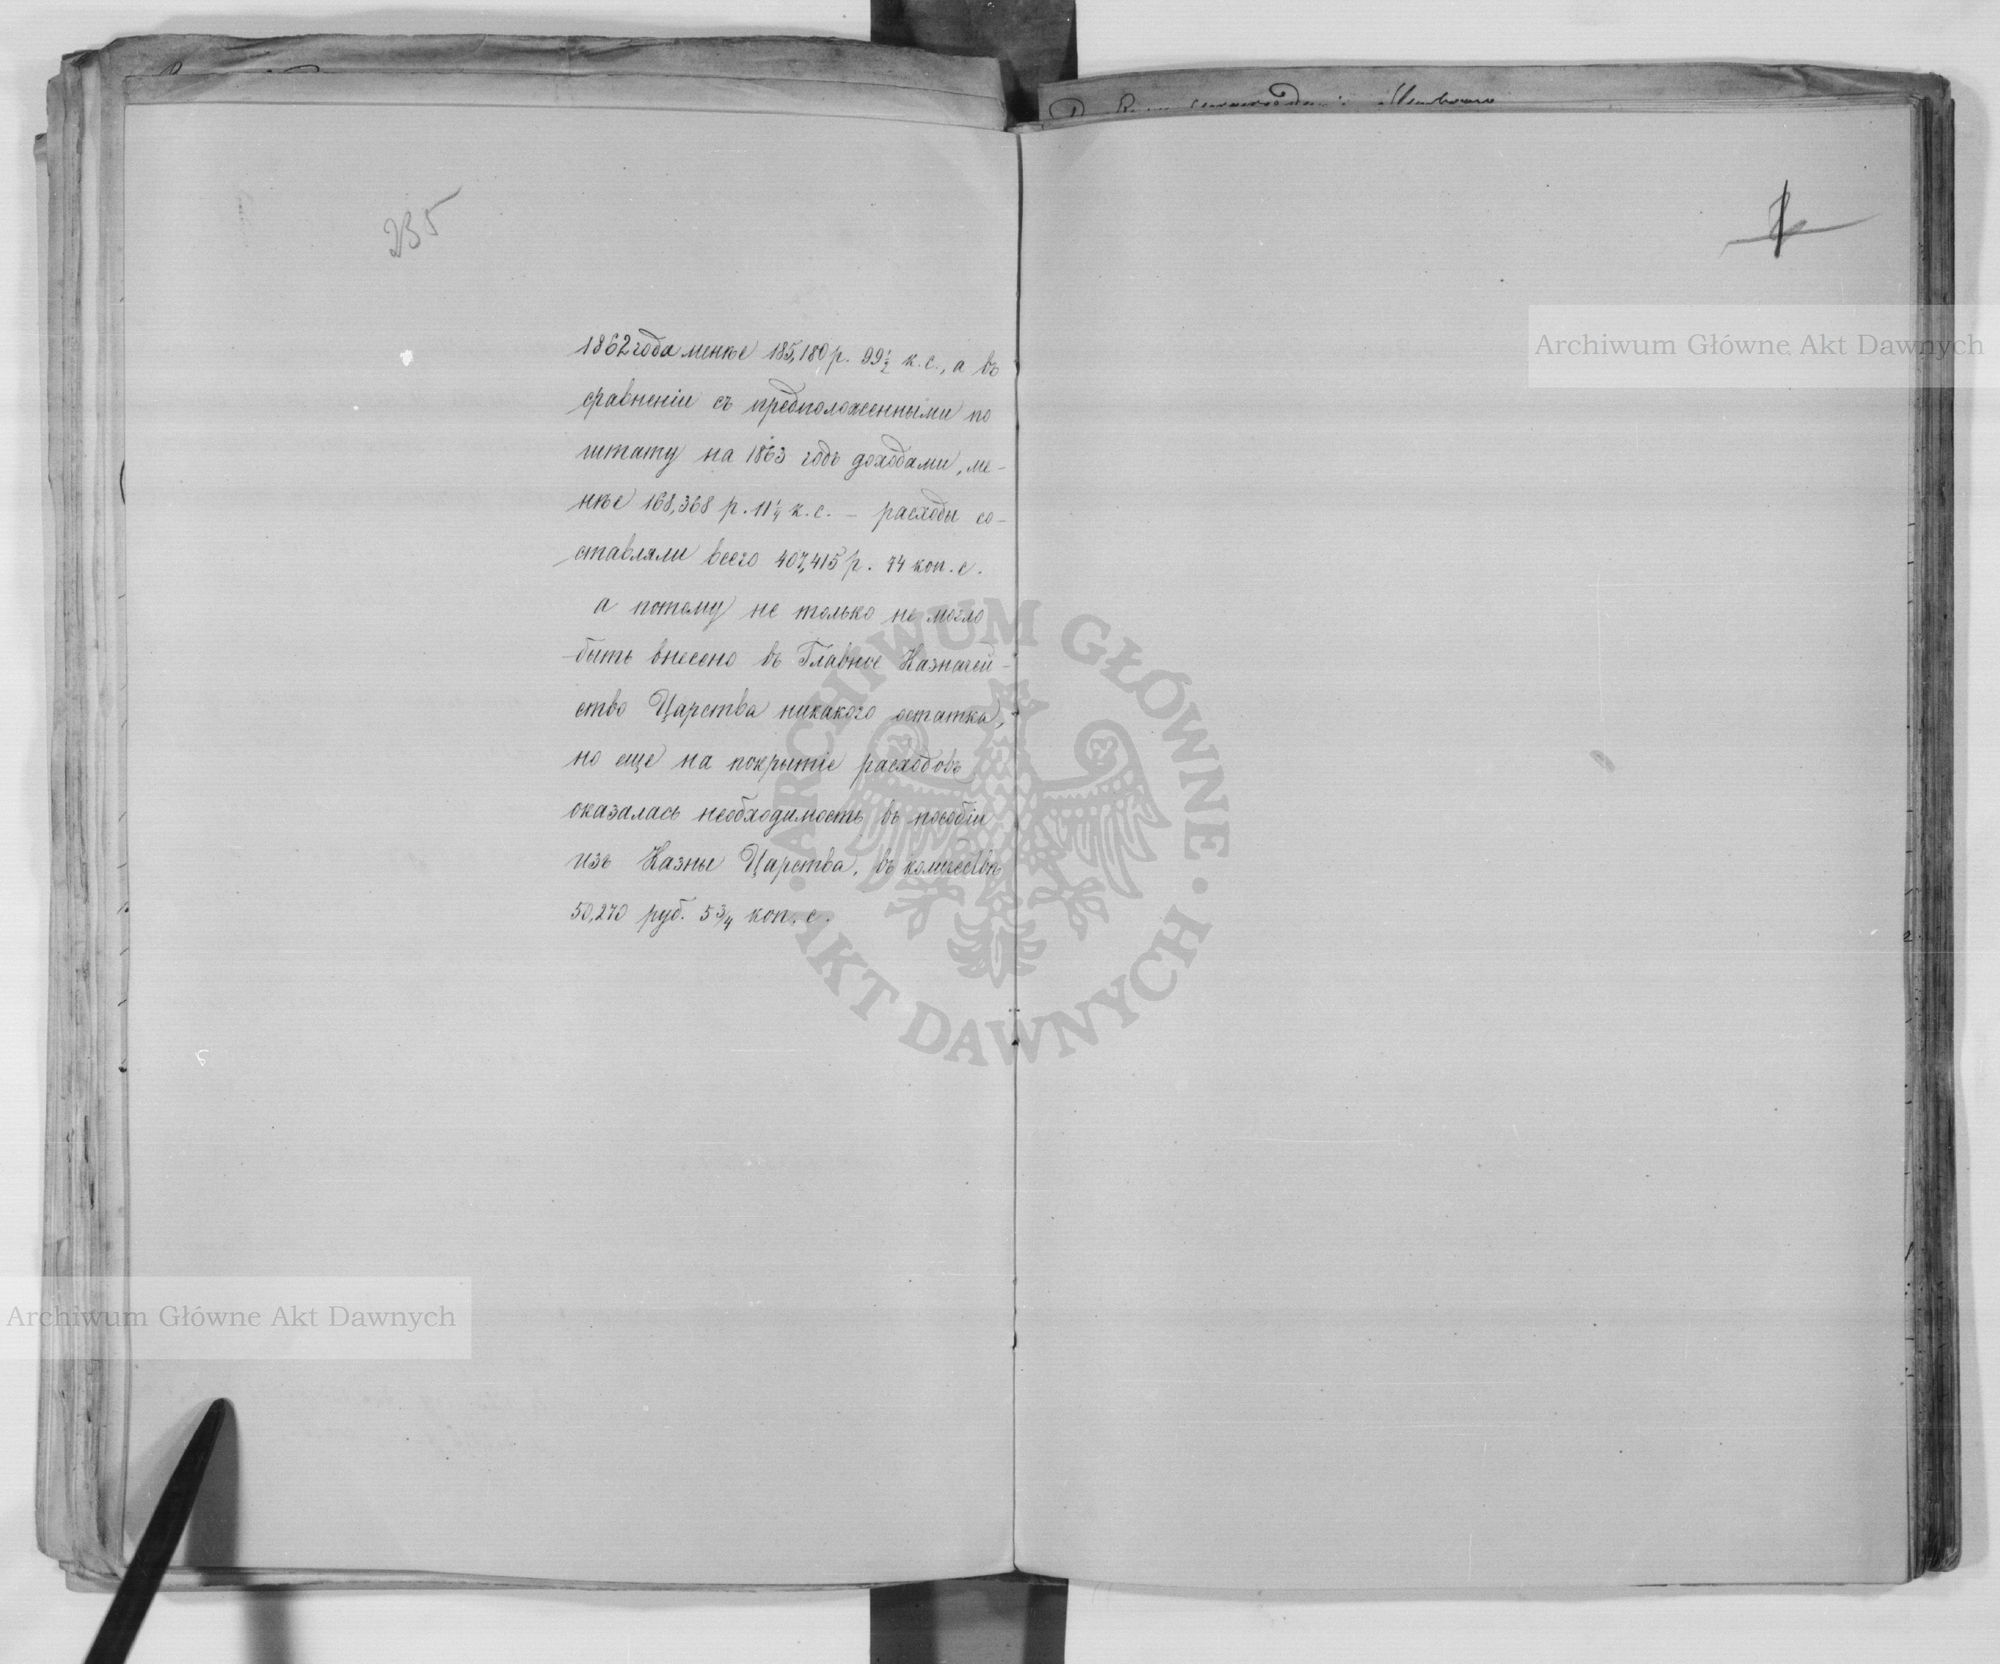 235
1862 года менѣе 185,180 р. 99½ к. с., а въ
сравненіи съ предположенными по
штату на 1863 годъ доходами, ме-
нѣе 168,368 р. 11¼ к. с. – расходы со-
ставляли всего 407,415 р. 74 коп. с.
а потому не только не могло
быть внесено въ Главное Казначей-
ство Царства никакого остатка,
но еще на покрытіе расходовъ
оказалась необходимость въ пособіи
изъ Казны Царства, въ количествѣ
50,270 руб. 5¾ коп. с.
Archiwum Główne Akt Dawnych
ARCHIWUM GŁÓWNE
AKT DAWNYCH
Archiwum Główne Akt Dawnych